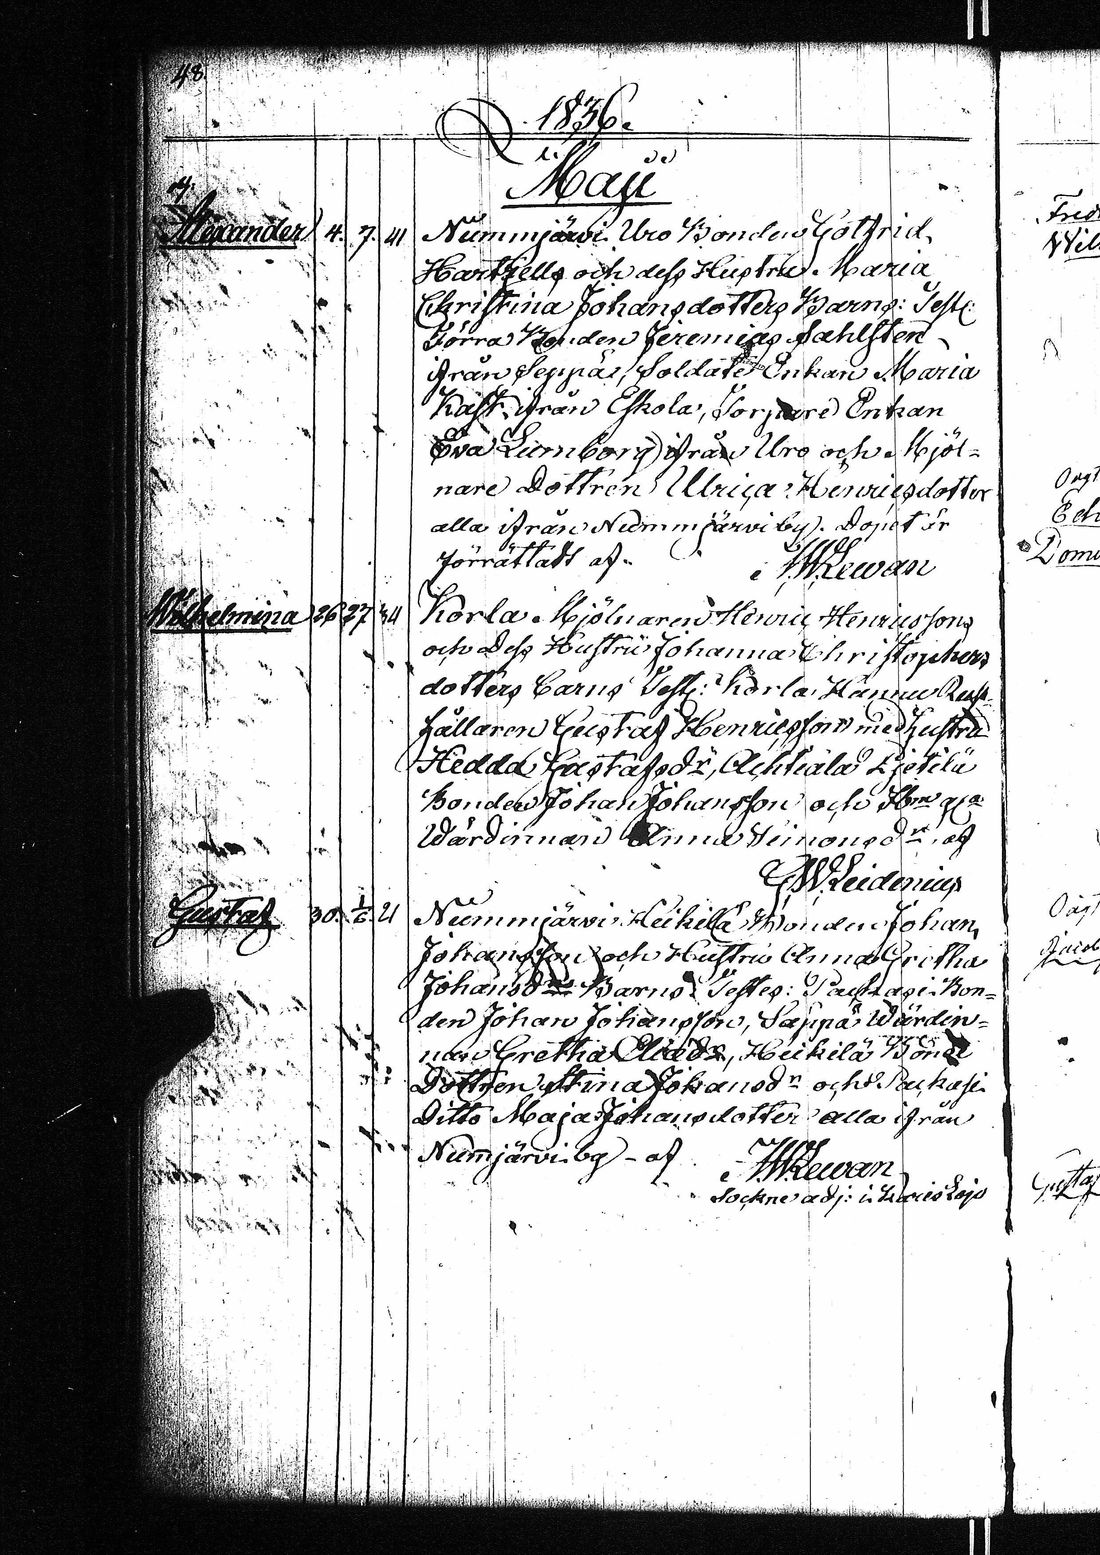 48.
1836.
Maji
Alexander 4. 7. 41 Nummjärvi Uro Bonden Gotfrid
Hartzells och dess Hustru Maria
Christina Johansdotters Barn: Test:
Förra Bonden Jeremias Sahlsten
ifrån Seppä, Soldate Enkan Maria
Kask ifrån Eskola, Torpare Enkan
Eva Lumborg ifrån Uro och Mjöl=
nare Dottren Ulrica Henricsdotter
alla ifrån Nummjärvi by. Dopet är
förrättadt af
Lewan
Wilhelmina 26 27 34 Korla Mjölnaren Henric Henricssons
och dess Hustru Johanna Christophers
dotters barn Test: Korla Hannu
hållaren Gustaf Henricsson med hustru
Hedda Gustafsdr, Achtiala
Bonden Johan Johansson och
Wärdinnan Anna Simonsdr, af
Leidenius
Gustaf 30. 1/6. 21 Nummjärvi Heikilä Bonden Johan
Johansson och Hustru Anna Gretha
Johansdrs Barn: Testes: Packasi Bon=
den Johan Johansson, Säppä Wärdin=
nan Gretha, Heikilä Bonde
Dottren Stina Johansdr och Packasi
Ditto Maja Johansdotter alla ifrån
Numjärvi by - af
Lewan
Sockne adj: i Karislojo
Gustaf